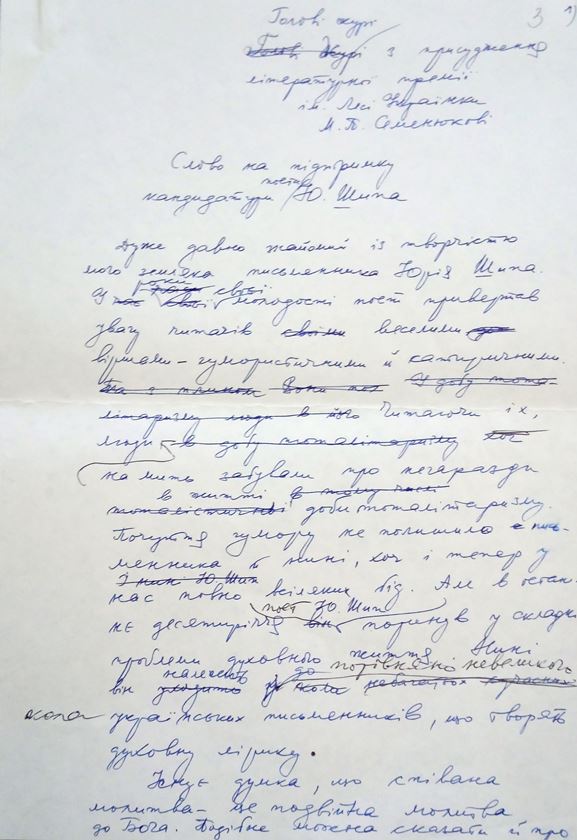 3 1)
Голові журі
Голові журі з присудження
літературної премії
ім. Лесі Українки
М. П. Семенюкові
Слово на підтримку
поета
кандидатури Ю. Шипа
Дуже давно знайомий із творчістю
мого земляка письменника Юрія Шипа.
роки своєї
У свої молодості поет привертав
увагу читачів своїми веселими
віршами – гумористичними й сатиричними.
Вони У добу тота-
літаризму люди в його Читаючи їх,
люди в добу тоталітаризму хоч
на мить забували про негаразди
в житті в тому числі
тоталістичної доби тоталітаризму.
Почуття гумору не полишило пись-
менника й нині, хоч і тепер у
З ним Ю. Шип
нас повно всіляких бід. Ал в остан-
поет Ю. Шип
нє десятиріччя він поринув у складні
проблеми духовного життя. Нині
належить до порівняно невеликого
він входить у коло небагатьох сучасних
кола українських письменників, що творять
духовну лірику.
Існує думка, що співана
молитва – це подвійна молитва
до Бога. Подібне можна сказати й про